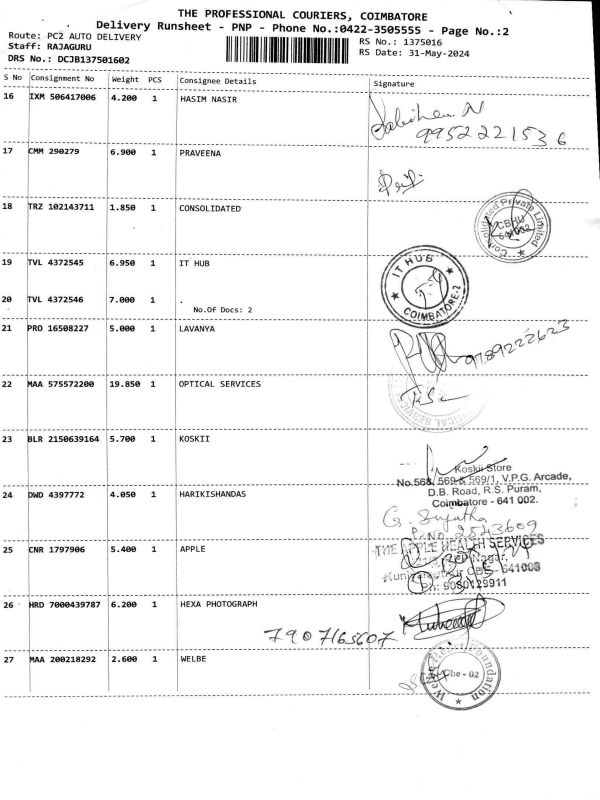 THE PROFESSIONAL COURIERS, COIMBATORE
Delivery Runsheet - PNP - Phone No.:0422-3505555 - Page No.:2
Route: PC2 AUTO DELIVERY
RS No.: 1375016
Staff: RAJAGURU
RS Date: 31-May-2024
DRS No.: DCJB137501602
S No Consignment No Weight PCS Consignee Details Signature
16 IXM 506417006 4.200 1 HASIM NASIR
9952221536
17 CMM 290279 6.900 1 PRAVEENA
18 TRZ 102143711 1.850 1 CONSOLIDATED
Private Limited
CBHU
641002
19 TVL 4372545 6.950 1 IT HUB
IT HUB
COIMBATORE-2
20 TVL 4372546 7.000 1 .
No.Of Docs: 2
21 PRO 16508227 5.000 1 LAVANYA
9789222623
22 MAA 575572200 19.850 1 OPTICAL SERVICES
23 BLR 2150639164 5.700 1 KOSKII
Koskii Store
No.568, 569 & 569/1, V.P.G. Arcade,
D.B. Road, R.S. Puram,
Coimbatore - 641 002.
24 DWD 4397772 4.050 1 HARIKISHANDAS
G. Sujatha
2543609
25 CNR 1797906 5.400 1 APPLE
THE APPLE HEALTH SERVICES
Nagar,
CBE - 641008
Ph: 9080129911
26 HRD 7000439787 6.200 1 HEXA PHOTOGRAPH
7907165607
27 MAA 200218292 2.600 1 WELBE
Foundation
Cbe - 02